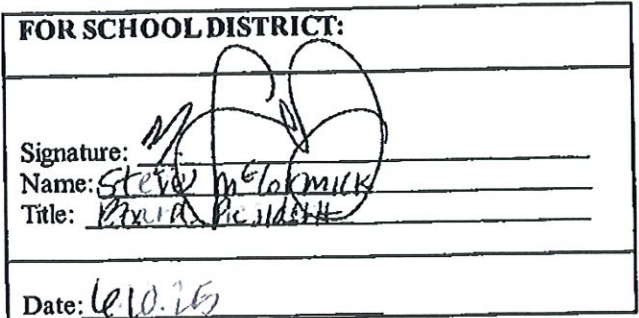 FOR SCHOOL DISTRICT:
Signature:
Name: Steve McCormick
Title: Board President
Date: 6.10.25